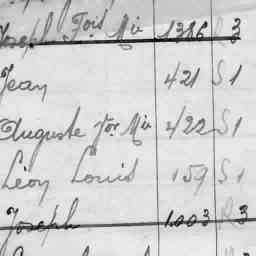 Joseph Fois Mie 1386 R 3
Jean 421 S 1
Auguste Mie 422 S 1
Léon Louis 159 S 1
Joseph 1.003 R 3